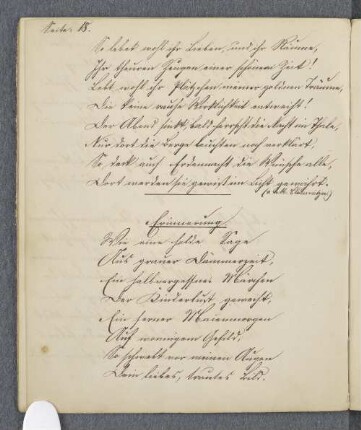 Seite: 18.
So lebet wohl ihr Lieben, und ihr Räume,
Ihr theuren Zeugen einer schönen Zeit!
Lebt wohl ihr Plätzchen meiner goldnen Träume,
Die keine rauhe Wirklichkeit entweiht!
Der Abend sinkt, bald herrscht die Nacht im Thale,
Nur dort die Berge leuchten noch verklärt,
So deck auch Erdennacht, die Wünsche alle,
Dort werden sie gewiss im Licht gewährt.
Erinnerung
Wie eine holde Sage
Aus grauer Dämmerzeit,
Ein halbvergessnes Märchen
Der Kinderlust geweiht,
Ein ferner Maienmorgen
Auf wonnigem Gefild,
So schwebt vor meinen Augen
Dein liebes, trautes Bild.